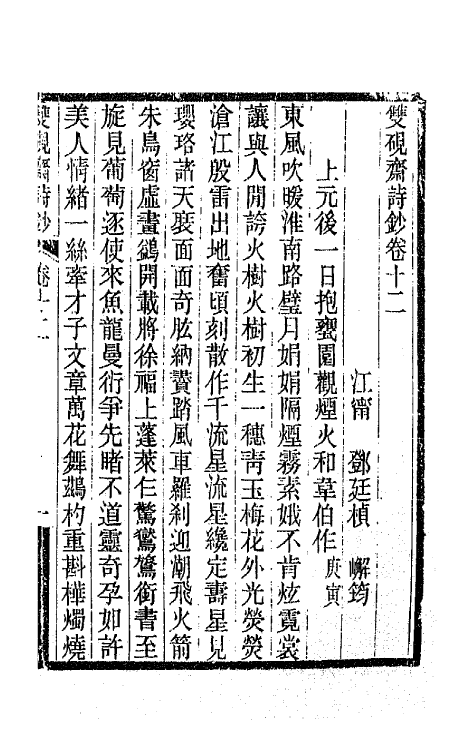 雙硯齋詩鈔卷十二
江甯　鄧廷楨　嶰筠
上元後一日抱甕園觀煙火和草伯作庚寅
東風吹暖淮南路璧月娟娟隔煙霧素娥不肯炫霓裳
讓與人閒誇火樹火樹初生一穗靑玉梅花外光熒熒
滄江殷雷出地奮頃刻散作千流星流星纔定壽星見
瓔珞諸天裝面面奇肱納贊踏風車羅刹迎潮飛火箭
朱鳥窗虛畫鷁開載將徐福上蓬萊仨驚鴛鴦銜書至
旋見葡萄逐使來魚龍曼衍爭先睹不道靈奇孕如許
美人情緒一絲牽才子文章萬花舞鷀杓重斟樺燭燒
雙硯齋詩鈔　卷十二　一